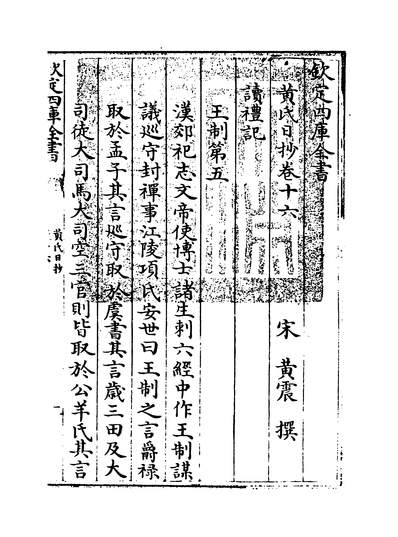 欽定四庫全書
黃氏日抄卷十六
宋 黃震 撰
讀禮記
王制第五
漢郊祀志文帝使博士諸生刺六經中作王制謀
議巡守封禪事江陵項氏安世曰王制之言爵禄
取於孟子其言巡守取於虞書其言歲三田及大
司徒大司馬大司空三官則皆取於公羊氏其言
欽定四庫全書
黃氏日抄
一